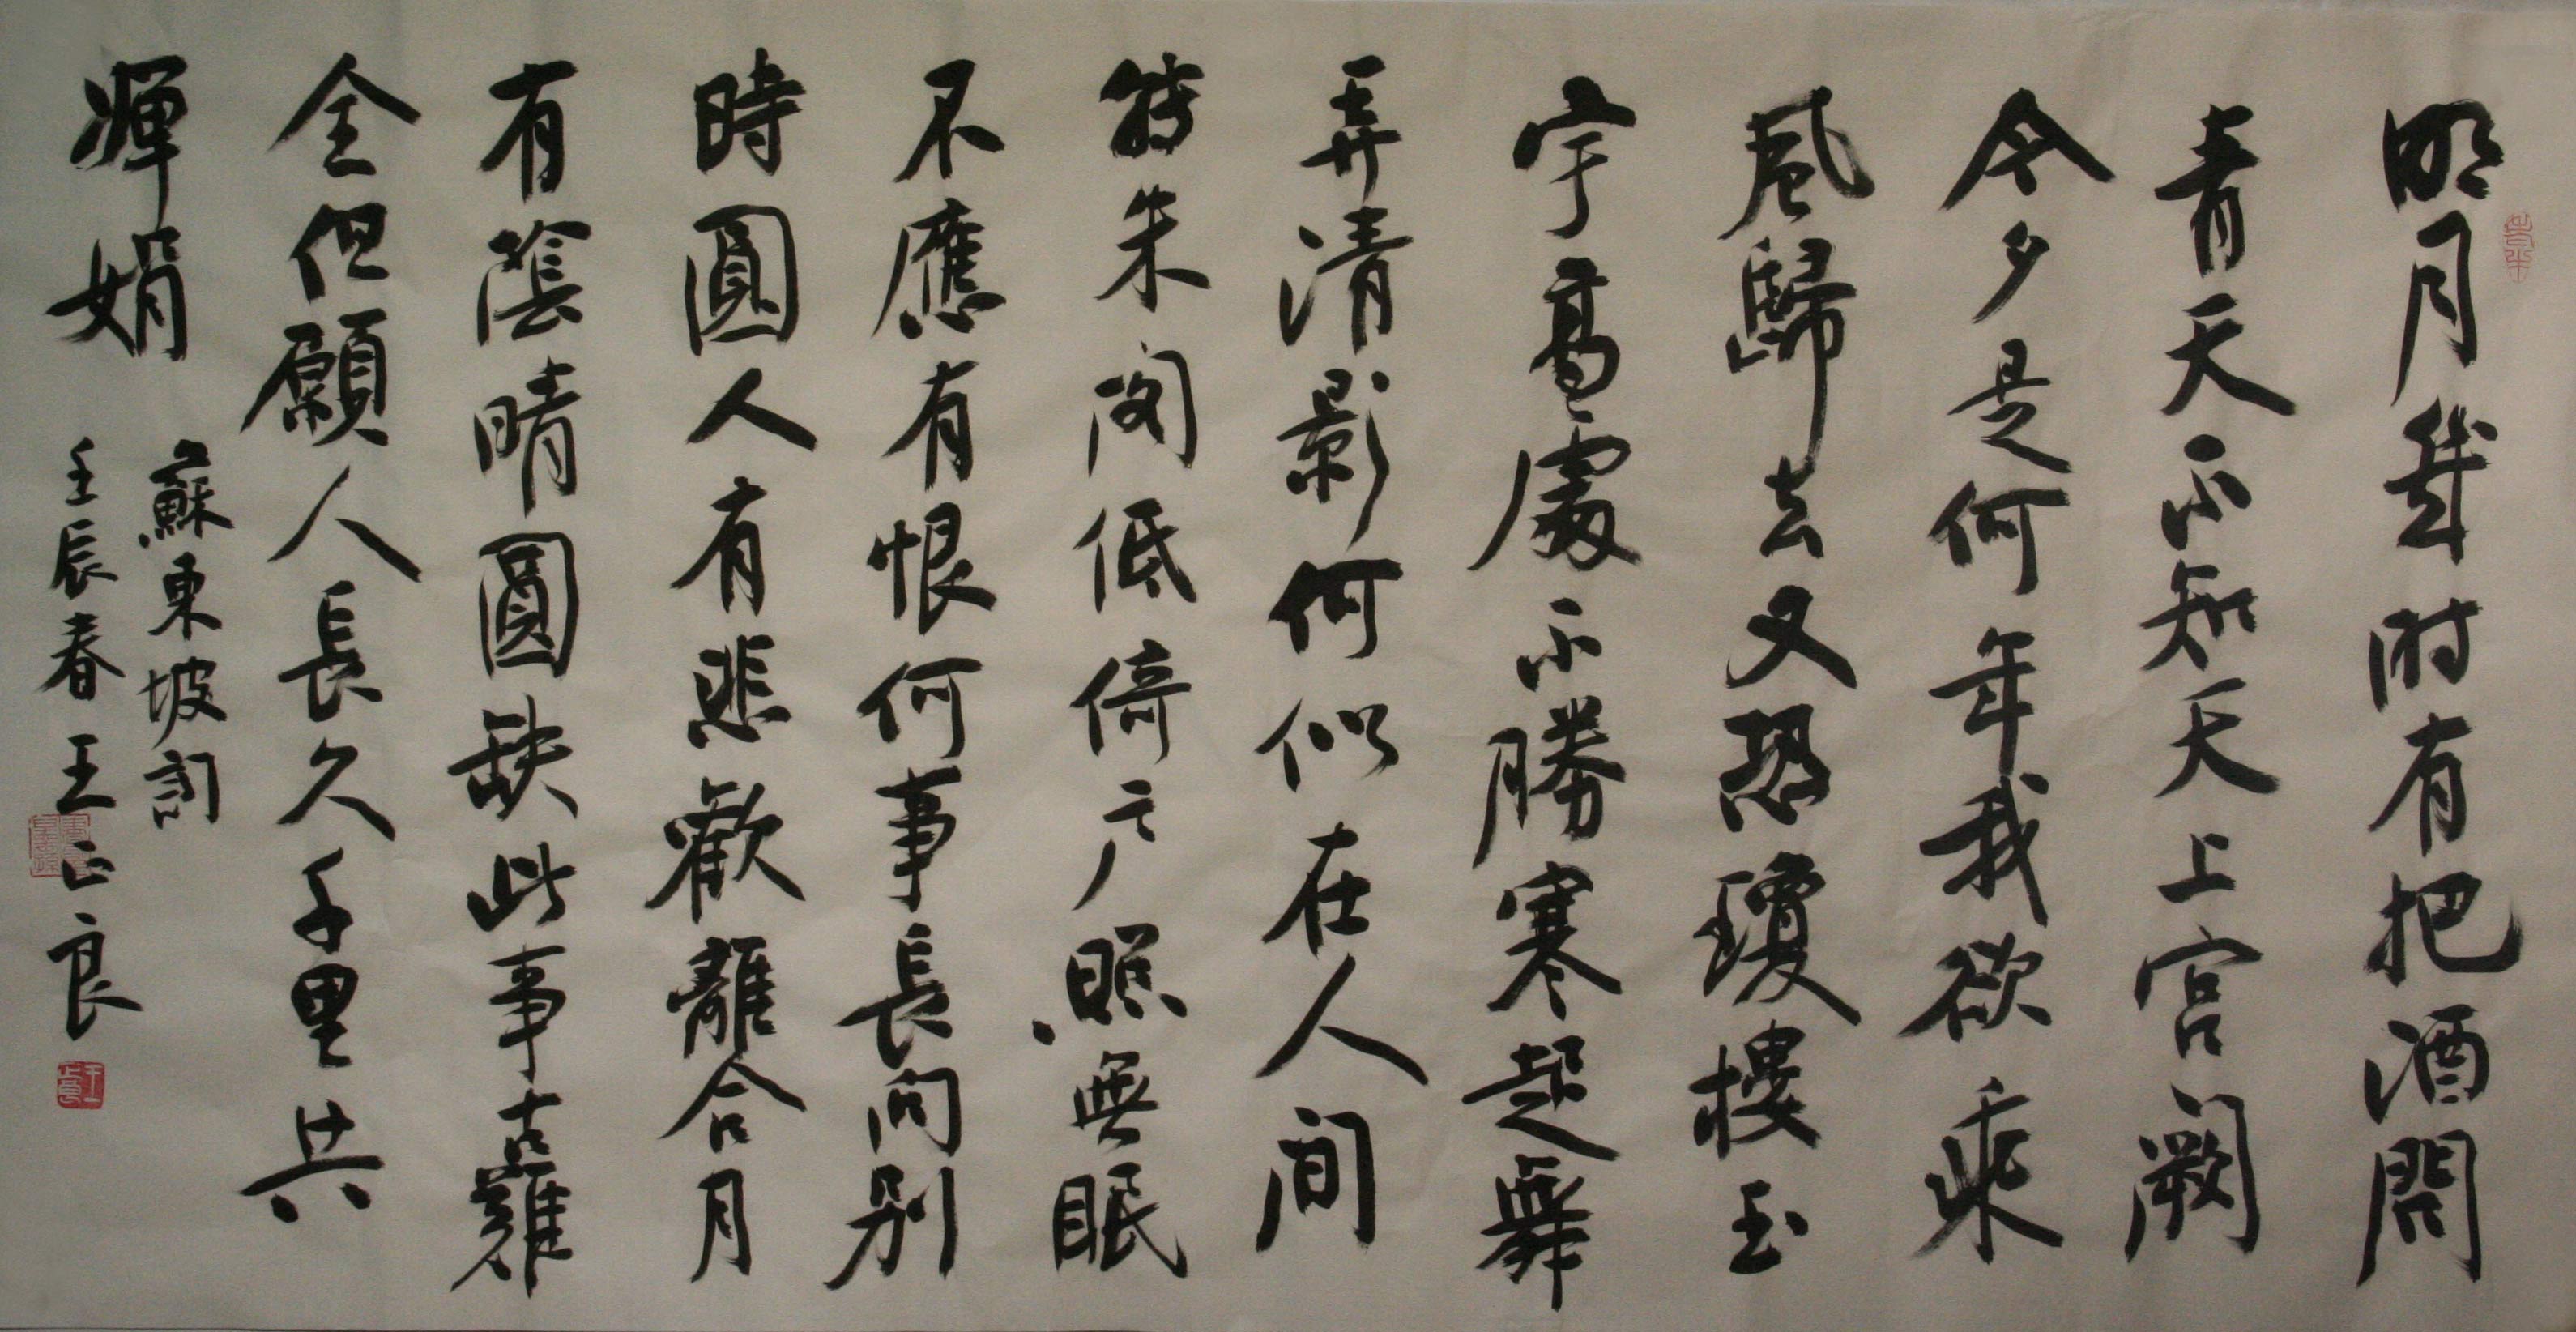 明月幾时有把酒問
青天不知天上宫闕
今夕是何年我欲乘
風歸去又恐瓊樓玉
宇高處不勝寒起舞
弄清影何似在人间
转朱阁低倚户照無眠
不應有恨何事長向别
時圓人有悲歡離合月
有陰晴圓缺此事古難
全但願人長久千里共
嬋娟
蘇東坡词
壬辰春王正良